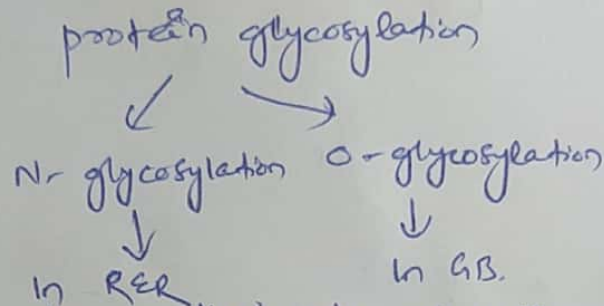 protein glycosylation
N- glycosylation O-glycosylation
In RER
In GB.